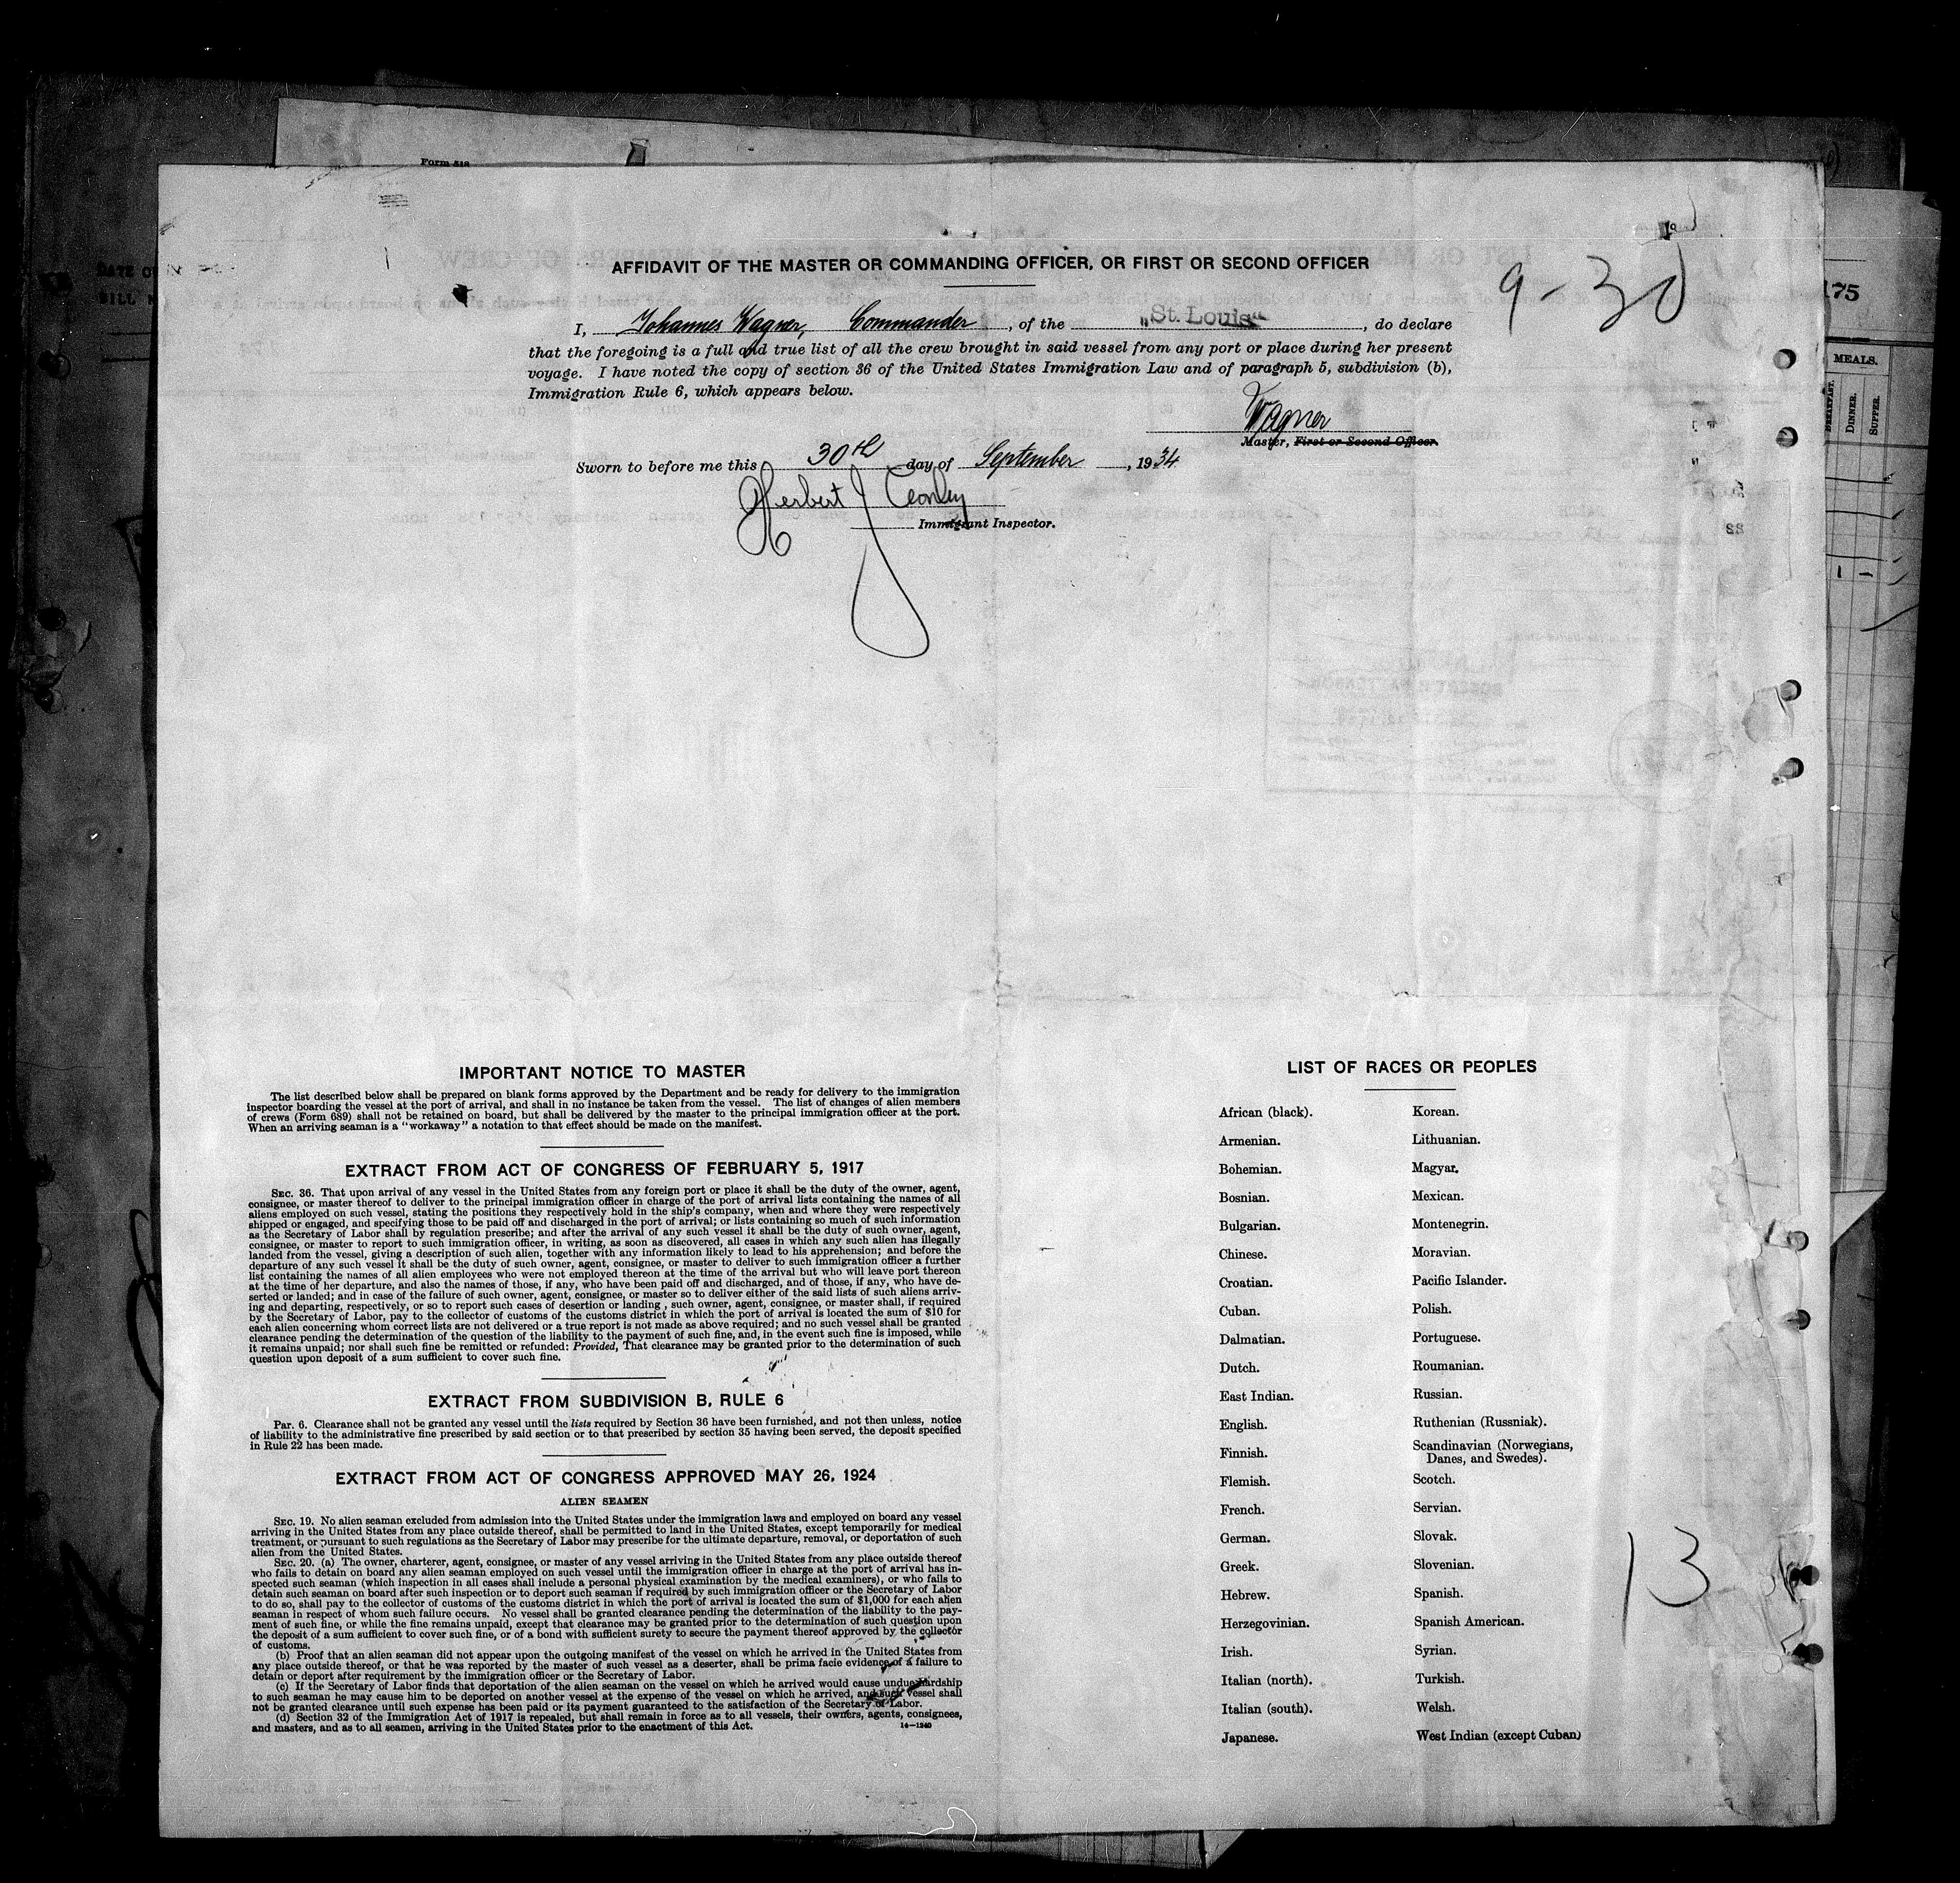 Form 618
AFFIDAVIT OF THE MASTER OR COMMANDING OFFICER, OR FIRST OR SECOND OFFICER
9-30
175
I, Johannes Wagner, Commander, of the "St. Louis", do declare
that the foregoing is a full and true list of all the crew brought in said vessel from any port or place during her present
voyage. I have noted the copy of section 36 of the United States Immigration Law and of paragraph 5, subdivision (b),
Immigration Rule 6, which appears below.
MEALS.
BREAKFAST.
DINNER.
SUPPER.
Wagner
Master, First or Second Officer.
Sworn to before me this 30th day of September, 1934
Herbert J Conley
Immigrant Inspector.
IMPORTANT NOTICE TO MASTER
The list described below shall be prepared on blank forms approved by the Department and be ready for delivery to the immigration
inspector boarding the vessel at the port of arrival, and shall in no instance be taken from the vessel. The list of changes of alien members
of crews (Form 689) shall not be retained on board, but shall be delivered by the master to the principal immigration officer at the port.
When an arriving seaman is a "workaway" a notation to that effect should be made on the manifest.
EXTRACT FROM ACT OF CONGRESS OF FEBRUARY 5, 1917
SEC. 36. That upon arrival of any vessel in the United States from any foreign port or place it shall be the duty of the owner, agent,
consignee, or master thereof to deliver to the principal immigration officer in charge of the port of arrival lists containing the names of all
aliens employed on such vessel, stating the positions they respectively hold in the ship's company, when and where they were respectively
shipped or engaged, and specifying those to be paid off and discharged in the port of arrival; or lists containing so much of such information
as the Secretary of Labor shall by regulation prescribe; and after the arrival of any such vessel it shall be the duty of such owner, agent,
consignee, or master to report to such immigration officer, in writing, as soon as discovered, all cases in which any such alien has illegally
landed from the vessel, giving a description of such alien, together with any information likely to lead to his apprehension; and before the
departure of any such vessel it shall be the duty of such owner, agent, consignee, or master to deliver to such immigration officer a further
list containing the names of all alien employees who were not employed thereon at the time of the arrival but who will leave port thereon
at the time of her departure, and also the names of those, if any, who have been paid off and discharged, and of those, if any, who have de-
serted or landed; and in case of the failure of such owner, agent, consignee, or master so to deliver either of the said lists of such aliens arriv-
ing and departing, respectively, or so to report such cases of desertion or landing , such owner, agent, consignee, or master shall, if required
by the Secretary of Labor, pay to the collector of customs of the customs district in which the port of arrival is located the sum of $10 for
each alien concerning whom correct lists are not delivered or a true report is not made as above required; and no such vessel shall be granted
clearance pending the determination of the question of the liability to the payment of such fine, and, in the event such fine is imposed, while
it remains unpaid; nor shall such fine be remitted or refunded: Provided, That clearance may be granted prior to the determination of such
question upon deposit of a sum sufficient to cover such fine.
EXTRACT FROM SUBDIVISION B, RULE 6
Par. 6. Clearance shall not be granted any vessel until the lists required by Section 36 have been furnished, and not then unless, notice
of liability to the administrative fine prescribed by said section or to that prescribed by section 35 having been served, the deposit specified
in Rule 22 has been made.
EXTRACT FROM ACT OF CONGRESS APPROVED MAY 26, 1924
ALIEN SEAMEN
SEC. 19. No alien seaman excluded from admission into the United States under the immigration laws and employed on board any vessel
arriving in the United States from any place outside thereof, shall be permitted to land in the United States, except temporarily for medical
treatment, or pursuant to such regulations as the Secretary of Labor may prescribe for the ultimate departure, removal, or deportation of such
alien from the United States.
SEC. 20. (a) The owner, charterer, agent, consignee, or master of any vessel arriving in the United States from any place outside thereof
who fails to detain on board any alien seaman employed on such vessel until the immigration officer in charge at the port of arrival has in-
spected such seaman (which inspection in all cases shall include a personal physical examination by the medical examiners), or who fails to
detain such seaman on board after such inspection or to deport such seaman if required by such immigration officer or the Secretary of Labor
to do so, shall pay to the collector of customs of the customs district in which the port of arrival is located the sum of $1,000 for each alien
seaman in respect of whom such failure occurs. No vessel shall be granted clearance pending the determination of the liability to the pay-
ment of such fine, or while the fine remains unpaid, except that clearance may be granted prior to the determination of such question upon
the deposit of a sum sufficient to cover such fine, or of a bond with sufficient surety to secure the payment thereof approved by the collector
of customs.
(b) Proof that an alien seaman did not appear upon the outgoing manifest of the vessel on which he arrived in the United States from
any place outside thereof, or that he was reported by the master of such vessel as a deserter, shall be prima facie evidence of a failure to
detain or deport after requirement by the immigration officer or the Secretary of Labor.
(c) If the Secretary of Labor finds that deportation of the alien seaman on the vessel on which he arrived would cause undue hardship
to such seaman he may cause him to be deported on another vessel at the expense of the vessel on which he arrived, and such vessel shall
not be granted clearance until such expense has been paid or its payment guaranteed to the satisfaction of the Secretary of Labor.
(d) Section 32 of the Immigration Act of 1917 is repealed, but shall remain in force as to all vessels, their owners, agents, consignees,
and masters, and as to all seamen, arriving in the United States prior to the enactment of this Act.
14-1240
LIST OF RACES OR PEOPLES
African (black).
Armenian.
Bohemian.
Bosnian.
Bulgarian.
Chinese.
Croatian.
Cuban.
Dalmatian.
Dutch.
East Indian.
English.
Finnish.
Flemish.
French.
German.
Greek.
Hebrew.
Herzegovinian.
Irish.
Italian (north).
Italian (south).
Japanese.
Korean.
Lithuanian.
Magyar.
Mexican.
Montenegrin.
Moravian.
Pacific Islander.
Polish.
Portuguese.
Roumanian.
Russian.
Ruthenian (Russniak).
Scandinavian (Norwegians,
Danes, and Swedes).
Scotch.
Servian.
Slovak.
Slovenian.
Spanish.
Spanish American.
Syrian.
Turkish.
Welsh.
West Indian (except Cuban)
13